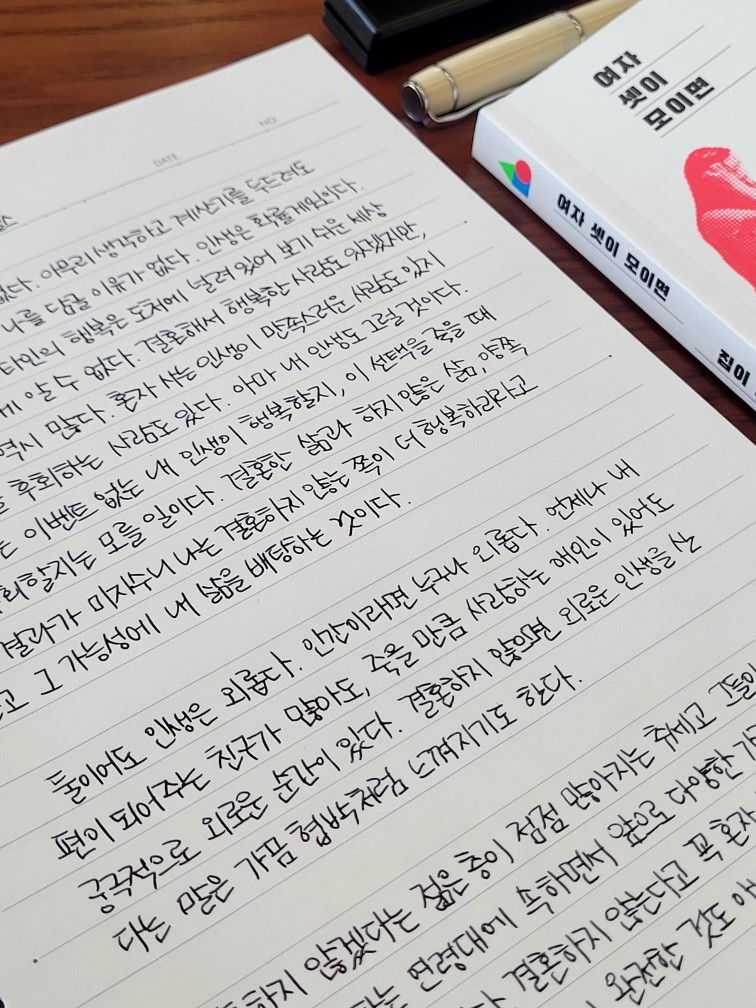 DATE
NO
없다. 아무리 생각하고 계산기를 두드려도
나를 담글 이유가 없다. 인생은 확률게임이다.
타인의 행복은 도처에 널려 있어 보기 쉬운 세상
알 수 없다. 결혼해서 행복한 사람도 있겠지만,
역시 많다. 혼자 사는 인생이 만족스러운 사람도 있지
후회하는 사람도 있다. 아마 내 인생도 그럴 것이다.
이벤트 없는 내 인생이 행복할지, 이 선택을 죽을 때
후회할지는 모를 일이다. 결혼한 삶과 하지 않은 삶, 양쪽
결과가 미지수니 나는 결혼하지 않는 쪽이 더 행복하리라고
그 가능성에 내 삶을 배당하는 것이다.
둘이어도 인생은 외롭다. 인간이라면 누구나 외롭다. 언제나 내
편이 되어주는 친구가 많아도, 죽을 만큼 사랑하는 애인이 있어도
궁극적으로 외로운 순간이 있다. 결혼하지 않으면 외로운 인생을 산
다는 말은 가끔 협박처럼 느껴지기도 한다.
하지 않겠다는 젊은 층이 점점 많아지는 추세고
연령대에 속하면서 앞으로 다양한
결혼하지 않는다고 꼭 혼자
완전한 것도
여자
셋이
모이면
여자 셋이 모이면
집이